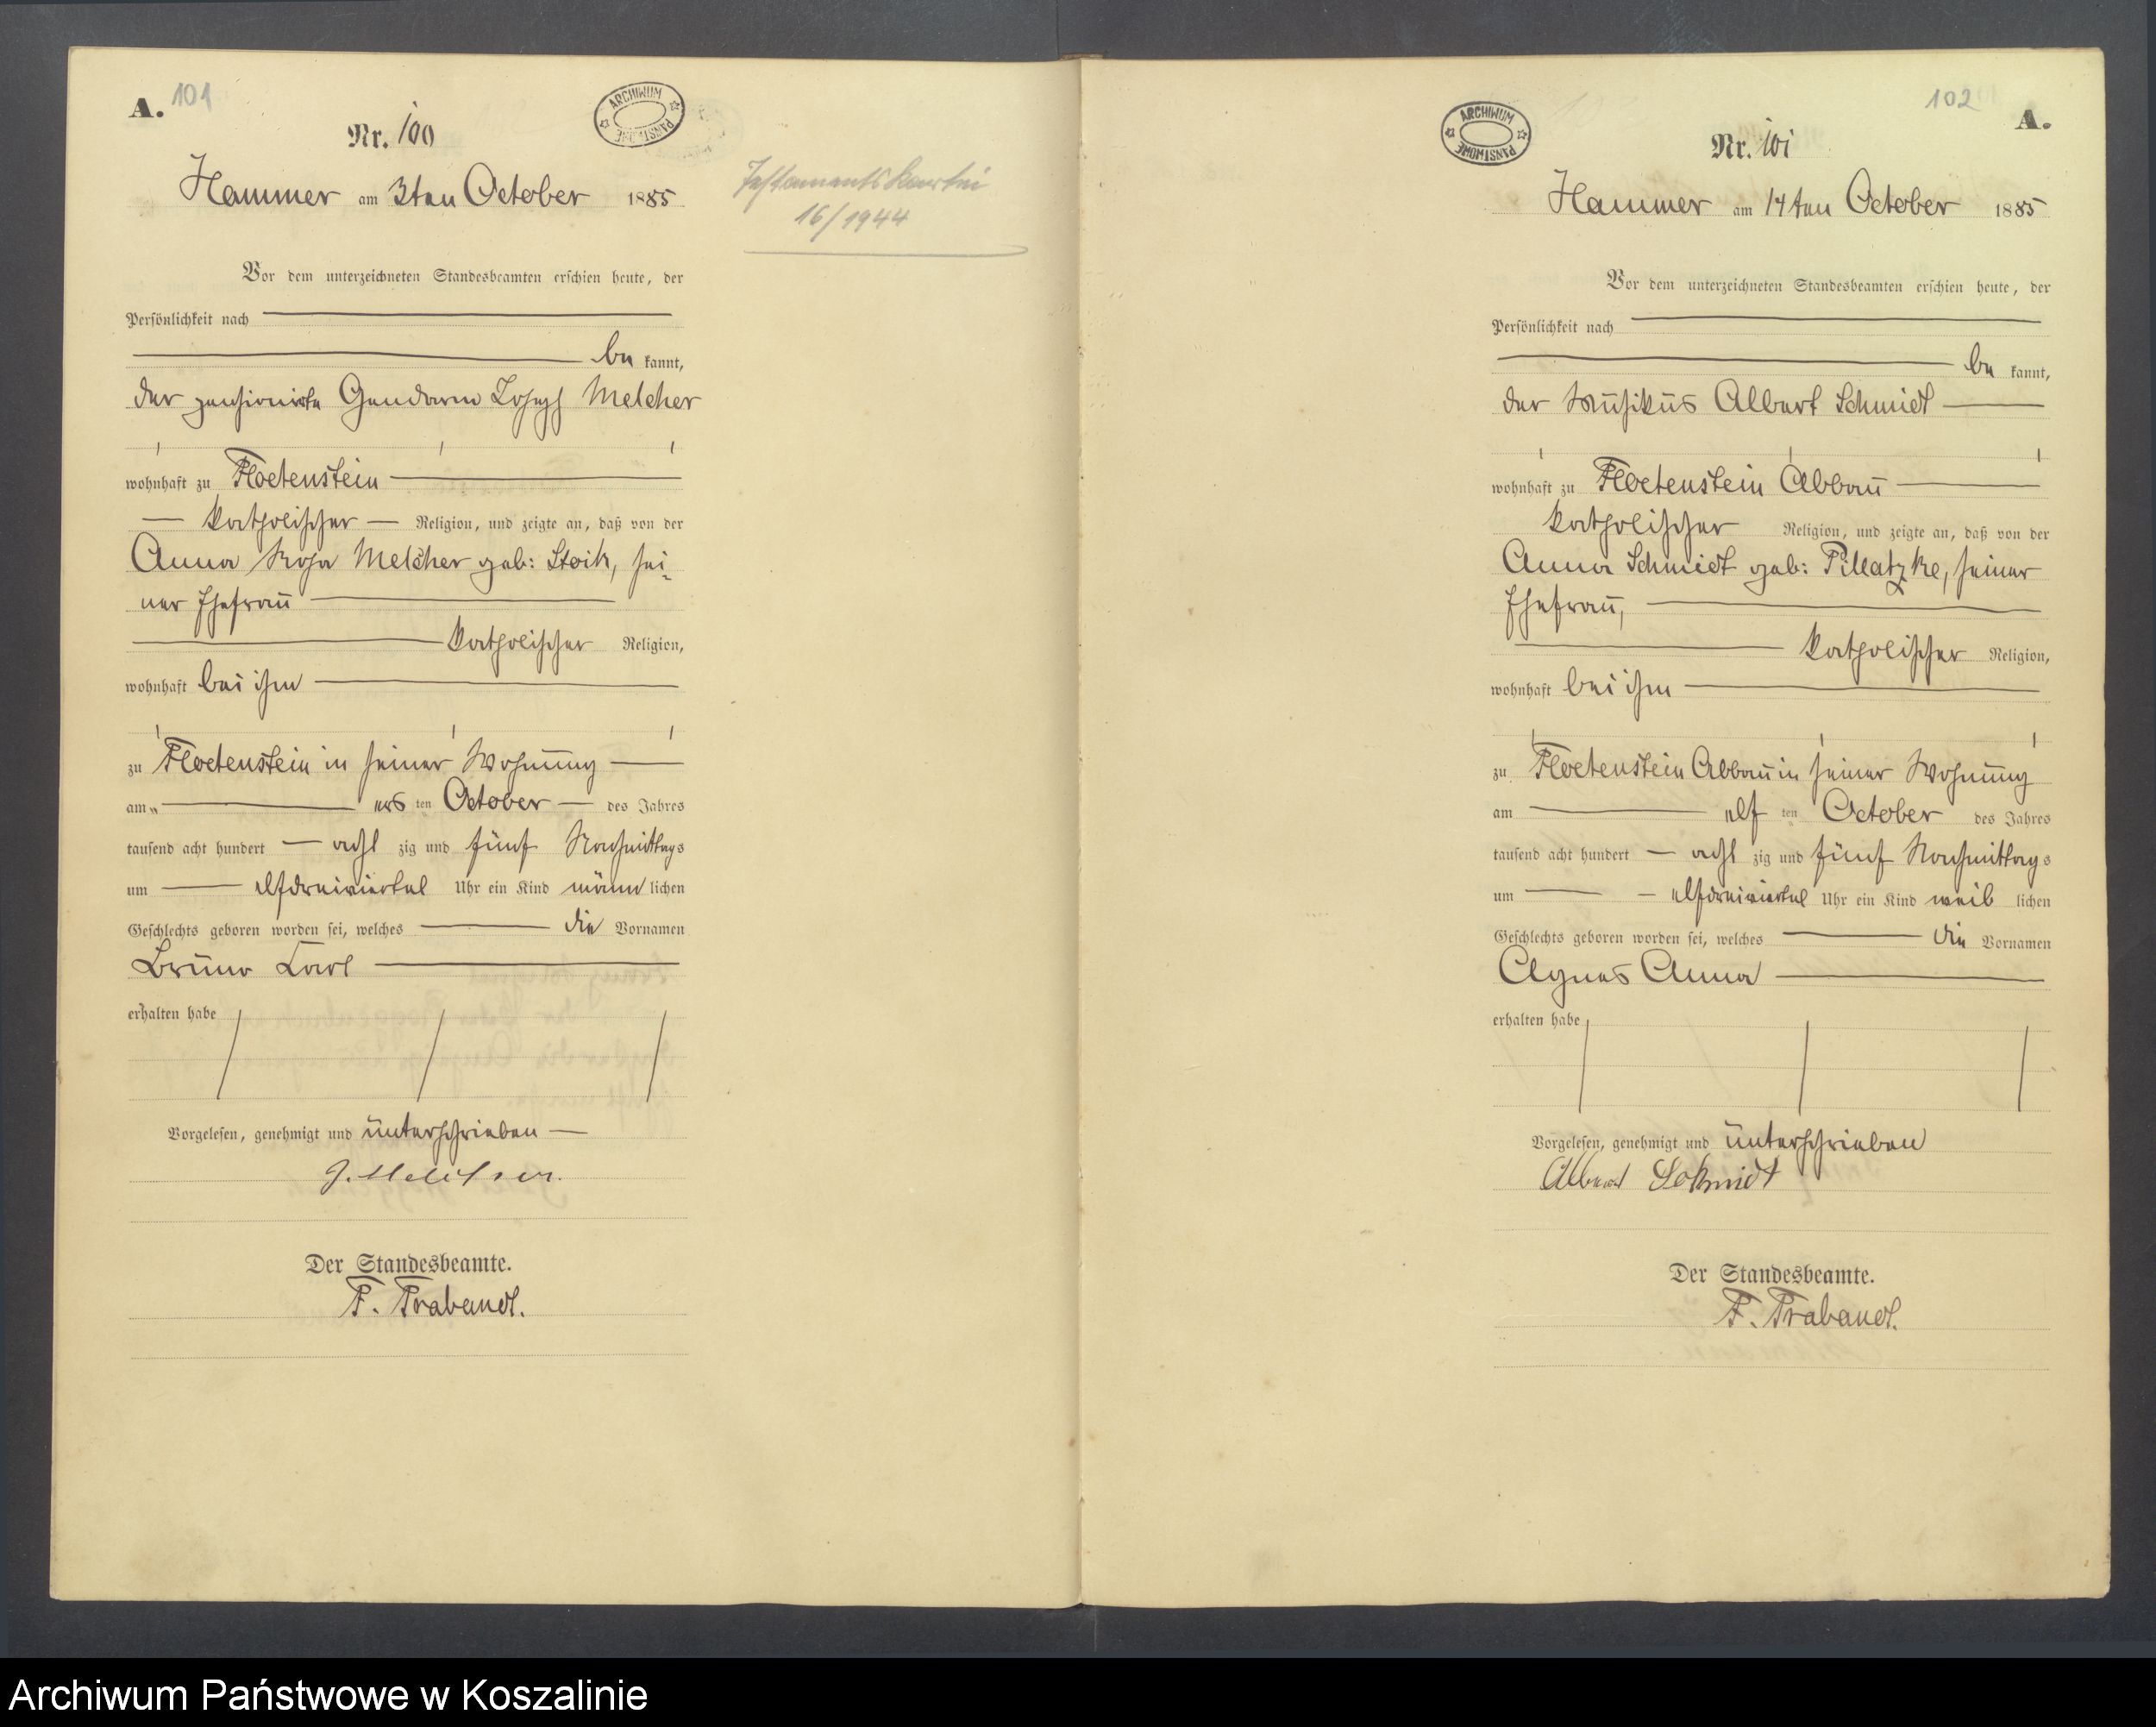 A. 101
ARCHIWUM PAŃSTWOWE
Nr. 100
Hammer am 3ten October 1885
Testamentskartei
16/1944
Vor dem unterzeichneten Standesbeamten erschien heute, der
Persönlichkeit nach
be kannt,
der pensionirte Gendarm Joseph Melcher
wohnhaft zu Floetenstein
katholischer Religion, und zeigte an, daß von der
Anna Rosa Melcher geb: , sei-
ner Ehefrau
katholischer Religion,
wohnhaft bei ihm
zu Floetenstein in seiner Wohnung
am ers ten October des Jahres
tausend acht hundert acht zig und fünf Nachmittags
um elfdreiviertel Uhr ein Kind männ lichen
Geschlechts geboren worden sei, welches die Vornamen
Bruno Carl
erhalten habe
Vorgelesen, genehmigt und unterschrieben
J. Melcher.
Der Standesbeamte.
F. Trabandt.
102 A.
ARCHIWUM PAŃSTWOWE
Nr. 101
Hammer am 14ten October 1885
Vor dem unterzeichneten Standesbeamten erschien heute, der
Persönlichkeit nach
be kannt,
der Musikus Albert Schmidt
wohnhaft zu Floetenstein Abbau
katholischer Religion, und zeigte an, daß von der
Anna Schmidt geb: Pillatzke, seiner
Ehefrau,
katholischer Religion,
wohnhaft bei ihm
zu Floetenstein Abbau in seiner Wohnung
am elf ten October des Jahres
tausend acht hundert acht zig und fünf Nachmittags
um elfdreiviertel Uhr ein Kind weib lichen
Geschlechts geboren worden sei, welches die Vornamen
Agnes Anna
erhalten habe
Vorgelesen, genehmigt und unterschrieben
Albert Schmidt
Der Standesbeamte.
F. Trabandt.
Archiwum Państwowe w Koszalinie